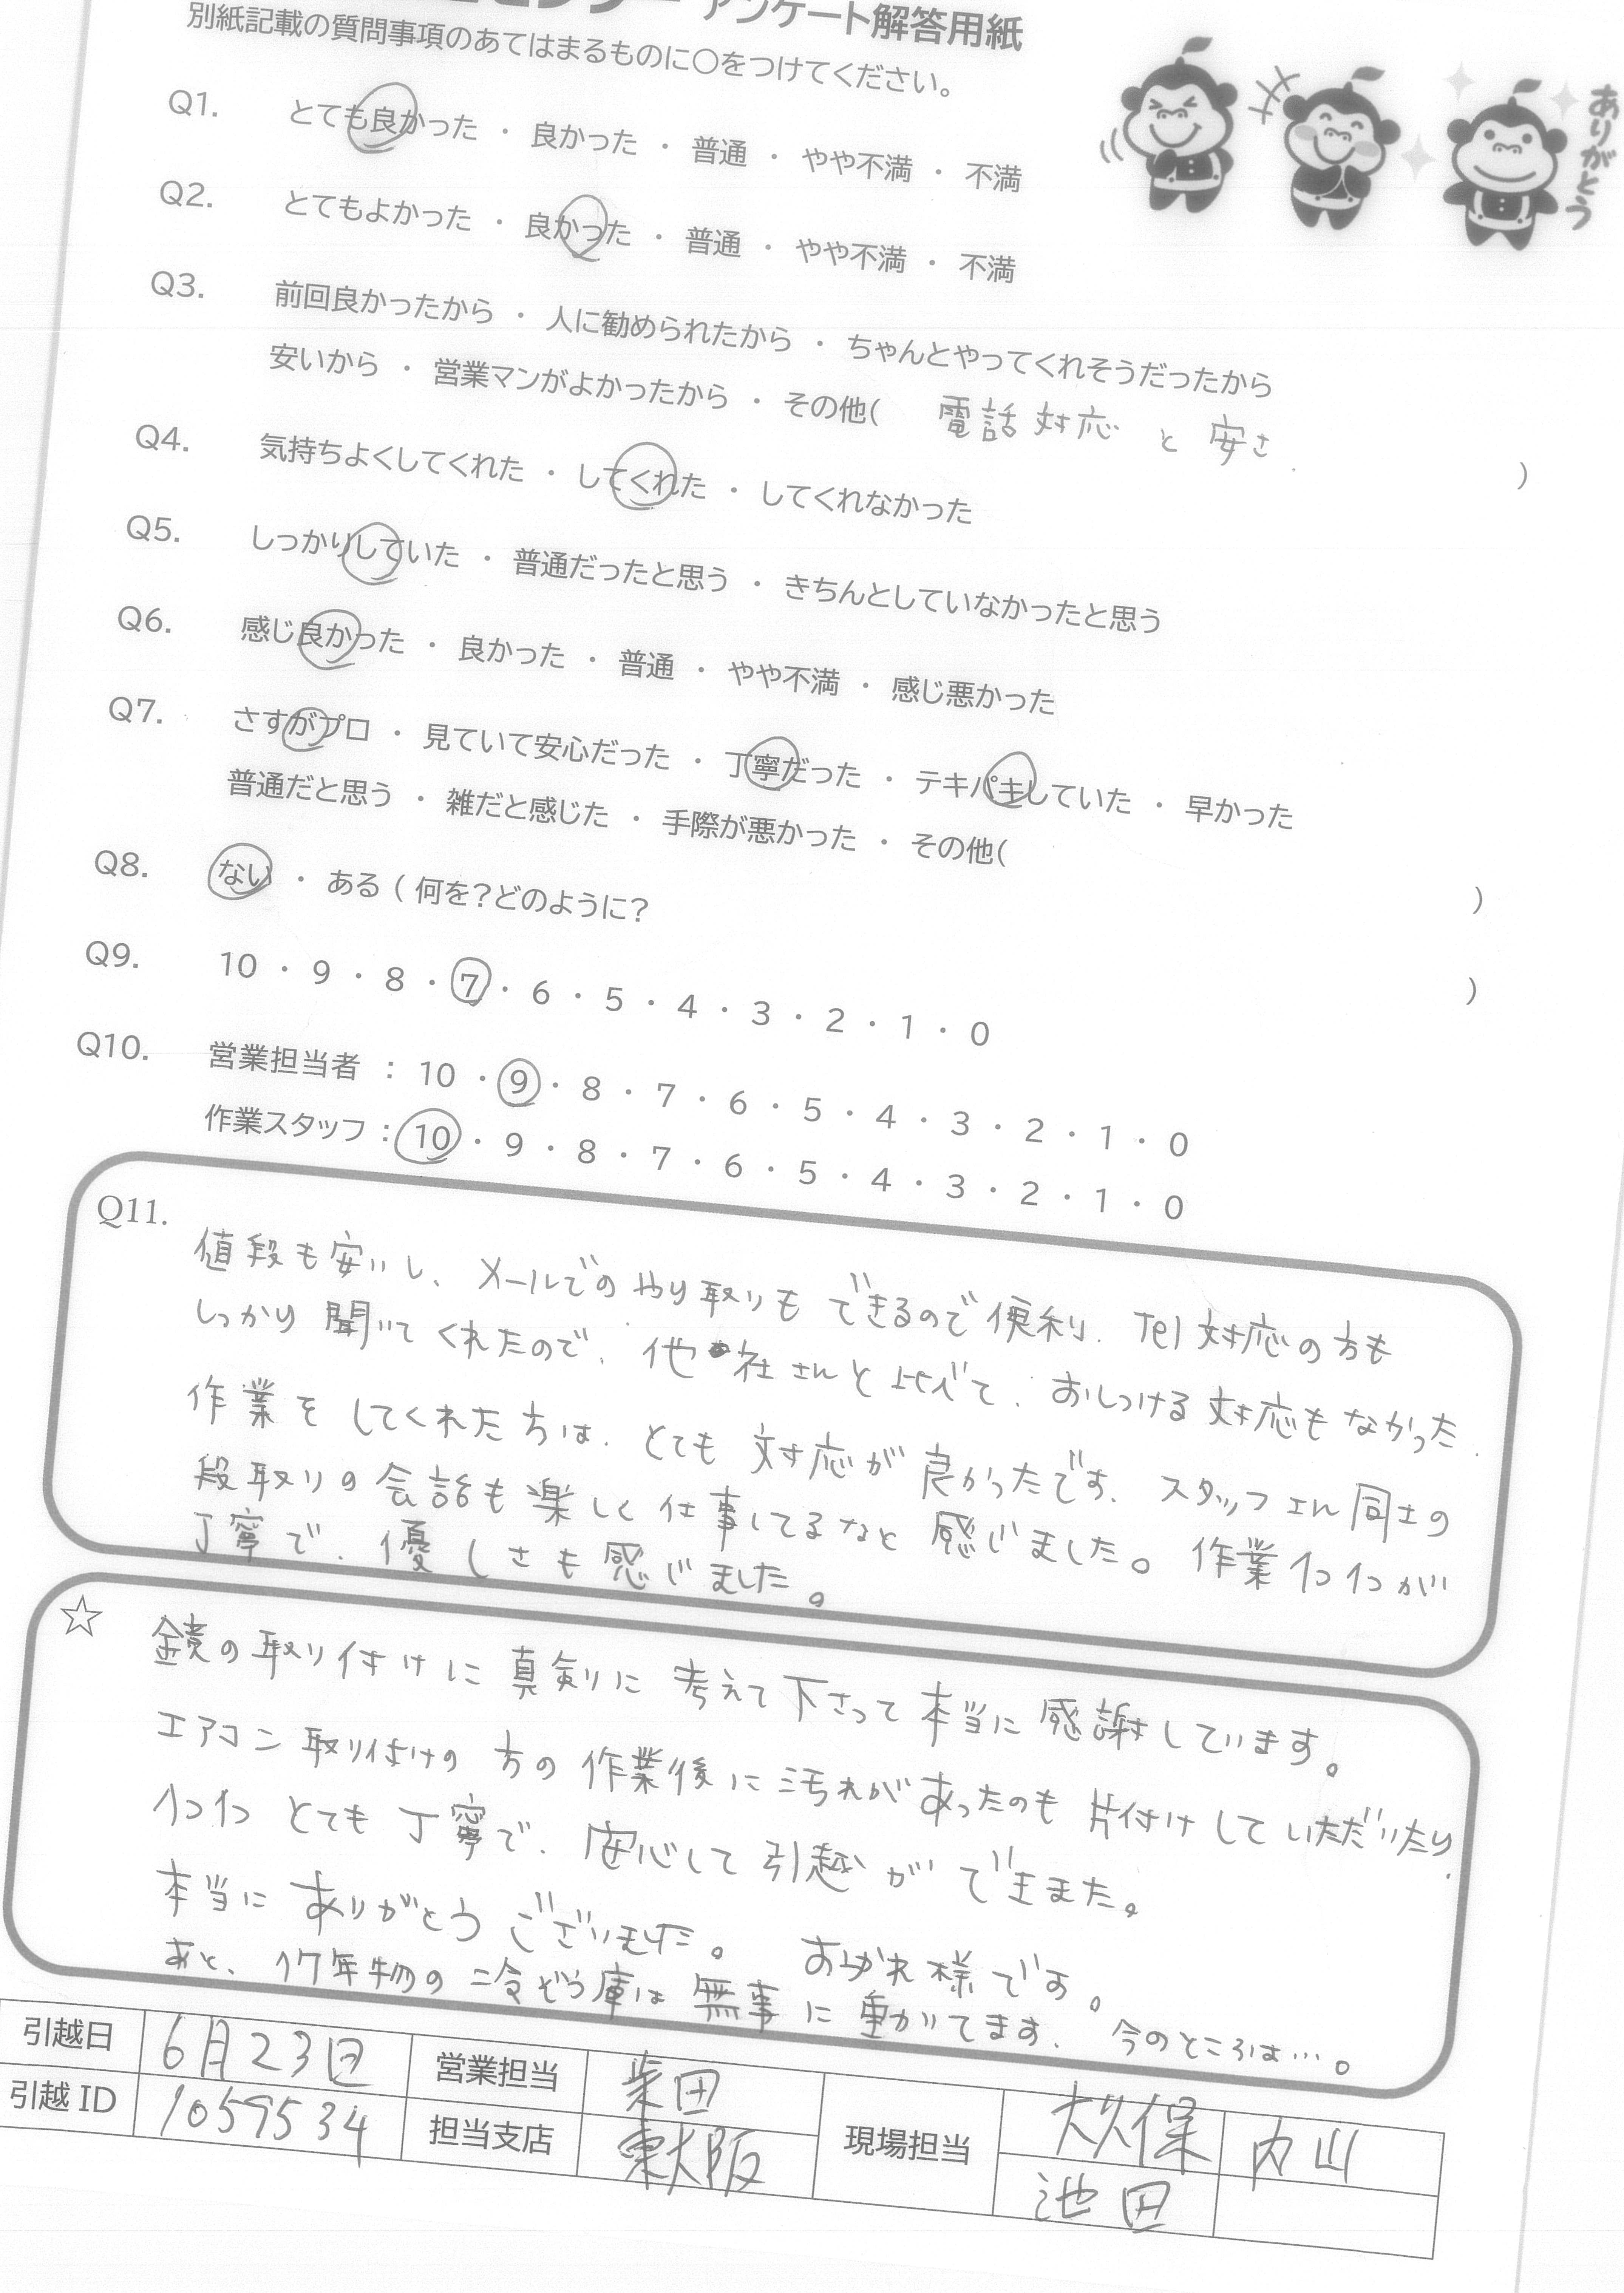 アンケート解答用紙
別紙記載の質問事項のあてはまるものに○をつけてください。
ありがとう
Q1. とても良かった ・ 良かった ・ 普通 ・ やや不満 ・ 不満
Q2. とてもよかった ・ 良かった ・ 普通 ・ やや不満 ・ 不満
Q3. 前回良かったから ・ 人に勧められたから ・ ちゃんとやってくれそうだったから
安いから ・ 営業マンがよかったから ・ その他( 電話対応 と 安さ. )
Q4. 気持ちよくしてくれた ・ してくれた ・ してくれなかった
Q5. しっかりしていた ・ 普通だったと思う ・ きちんとしていなかったと思う
Q6. 感じ良かった ・ 良かった ・ 普通 ・ やや不満 ・ 感じ悪かった
Q7. さすがプロ ・ 見ていて安心だった ・ 丁寧だった ・ テキパキしていた ・ 早かった
普通だと思う ・ 雑だと感じた ・ 手際が悪かった ・ その他( )
Q8. ない ・ ある ( 何を?どのように? )
Q9. 10 ・ 9 ・ 8 ・ 7 ・ 6 ・ 5 ・ 4 ・ 3 ・ 2 ・ 1 ・ 0
Q10. 営業担当者 : 10 ・ 9 ・ 8 ・ 7 ・ 6 ・ 5 ・ 4 ・ 3 ・ 2 ・ 1 ・ 0
作業スタッフ : 10 ・ 9 ・ 8 ・ 7 ・ 6 ・ 5 ・ 4 ・ 3 ・ 2 ・ 1 ・ 0
Q11.
値段も安いし、メールでのやり取りもできるので便利. Tel対応の方も
しっかり聞いてくれたので、他社さんと比べて、おしつける対応もなかった.
作業をしてくれた方は、とても対応が良かったです、スタッフさん同士の
段取りの会話も楽しく仕事してるなと感じました。作業1つ1つが
丁寧で、優しさも感じました。
☆
鏡の取り付けに真剣に考えて下さって本当に感謝しています。
エアコン取り付けの方の作業後に汚れがあったのも片付けしていただいたり、
1つ1つとても丁寧で、安心して引越ができました。
本当にありがとうございました。 おつかれ様です。
あと、17年物の冷ぞう庫は無事に動いてます. 今のところは…。
引越日 6月23日 営業担当 柴田 現場担当 大久保 内山
引越ID 1059534 担当支店 東大阪 池田